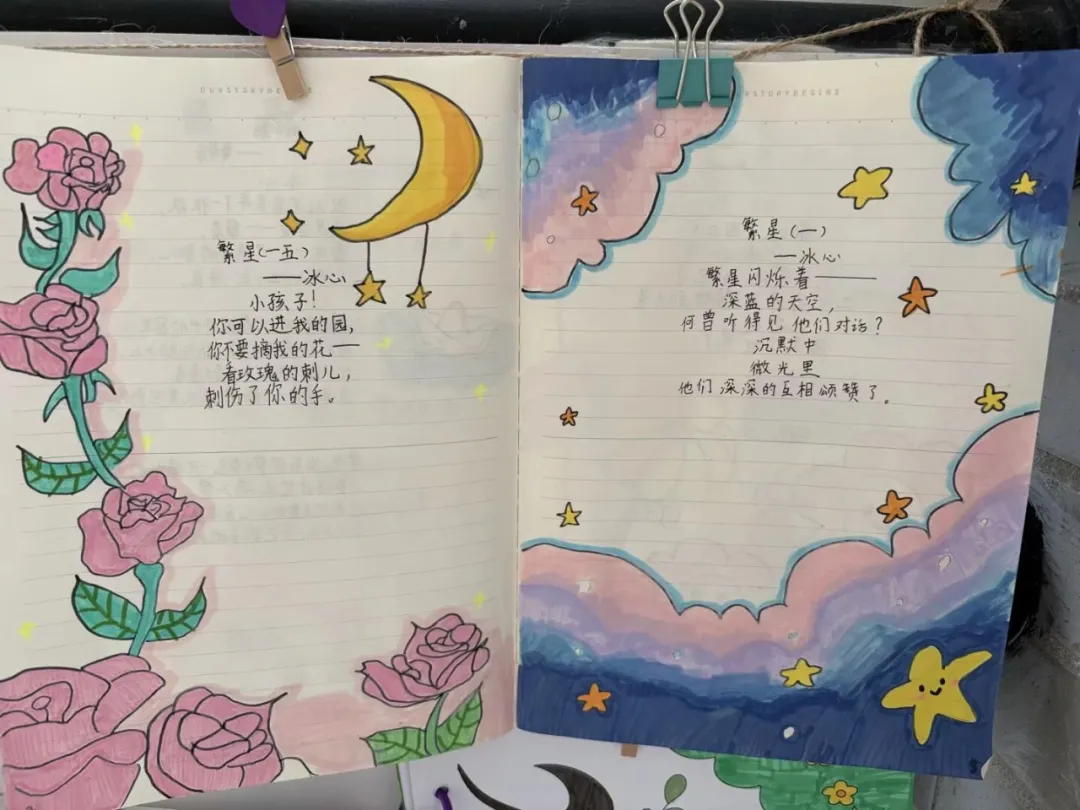 繁星(一五)
——冰心
小孩子!
你可以进我的园,
你不要摘我的花——
看玫瑰的刺儿,
刺伤了你的手。
繁星(一)
—冰心
繁星闪烁着———
深蓝的天空,
何曾听得见他们对话?
沉默中
微光里
他们深深的互相颂赞了。